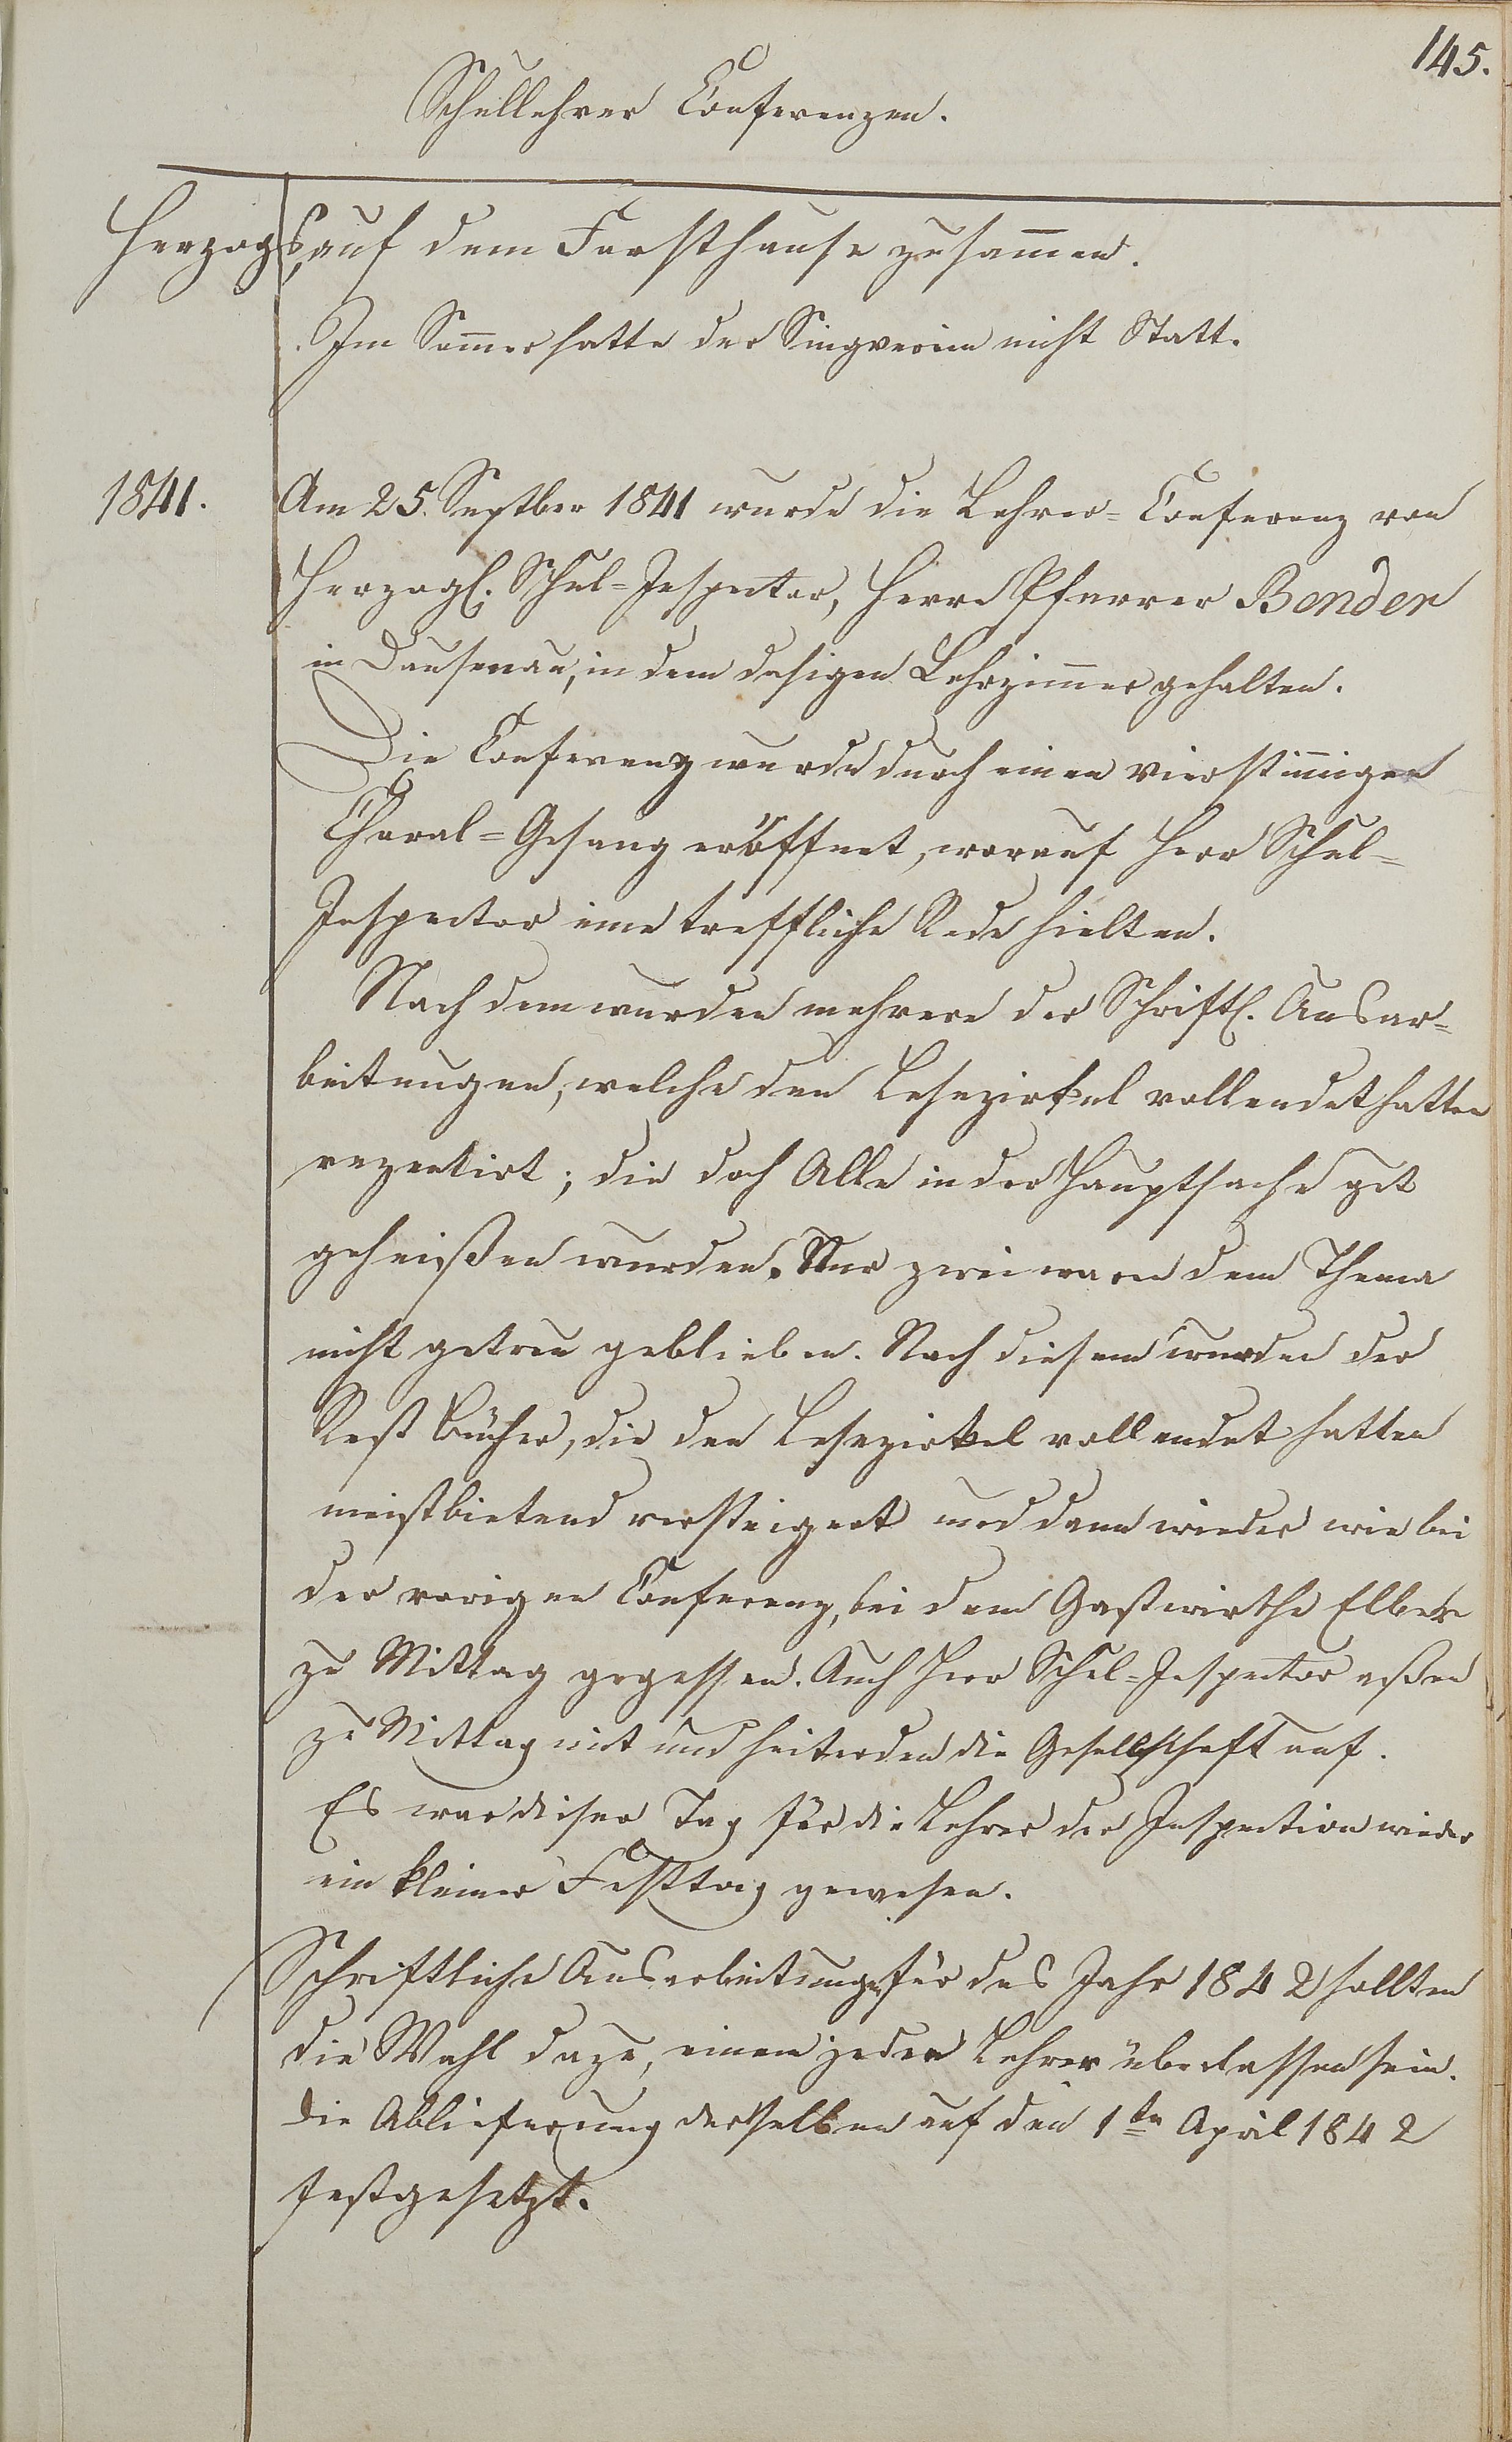 145.
Schullehrer Conferenzen.
Herzogs, auf dem Forsthause zusam̄en.
Im Som̄er hatte der Singverein nicht Statt.
1841.
Am 25. Septber 1841 wurde die Lehrer=Conferenz von
Herzogl. Schul=Inspector, Herrn Pfarrer Bender
in Dausenau, in dem dasigen Lehrzim̄er gehalten.
Die Conferenz wurde durch einen vierstim̄igen
Choral=Gesang eröffnet, worauf Herr Schul=
Inspector eine treffliche Rede hielten.
Nach dem wurden mehrere der Schriftl. Ausar=
beitungen, welche den Lesezirkel vollendet hatten
rezentirt; die doch Alle in der Hauptsache gut
geheißen wurden. Nur zwei waren dem Thema
nicht getreu geblieben. Nach diesem wurden der
Rest Bücher, die den Lesezirkel vollendet hatten
meistbietend versteigert und dann wieder wie bei
der vorigen Conferenz, bei dem Gastwirthe
zu Mittag gegessen. Auch Herr Schul=Inspector aßen
zu Mittag mit und heiterden die Gesellschaft auf.
Es war dieser Tag für die Lehrer der Inspection wieder
ein kleiner Festtag gewesen.
Schriftliche Ausarbeitungen für das Jahr 1842 sollten
die Wahl dazu, einem jeden Lehrer überlassen sein.
Die Ablieferung derselben auf den 1ten April 1842
festgesetzt.